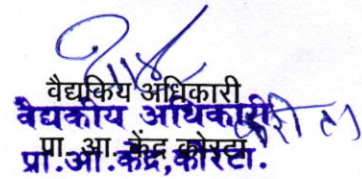 वैद्यकिय अधिकारी
वैद्यकीय अधिकारी
प्रा. आ. केंद्र कोरटा
प्रा.आ.केंद्र,कोरटा.